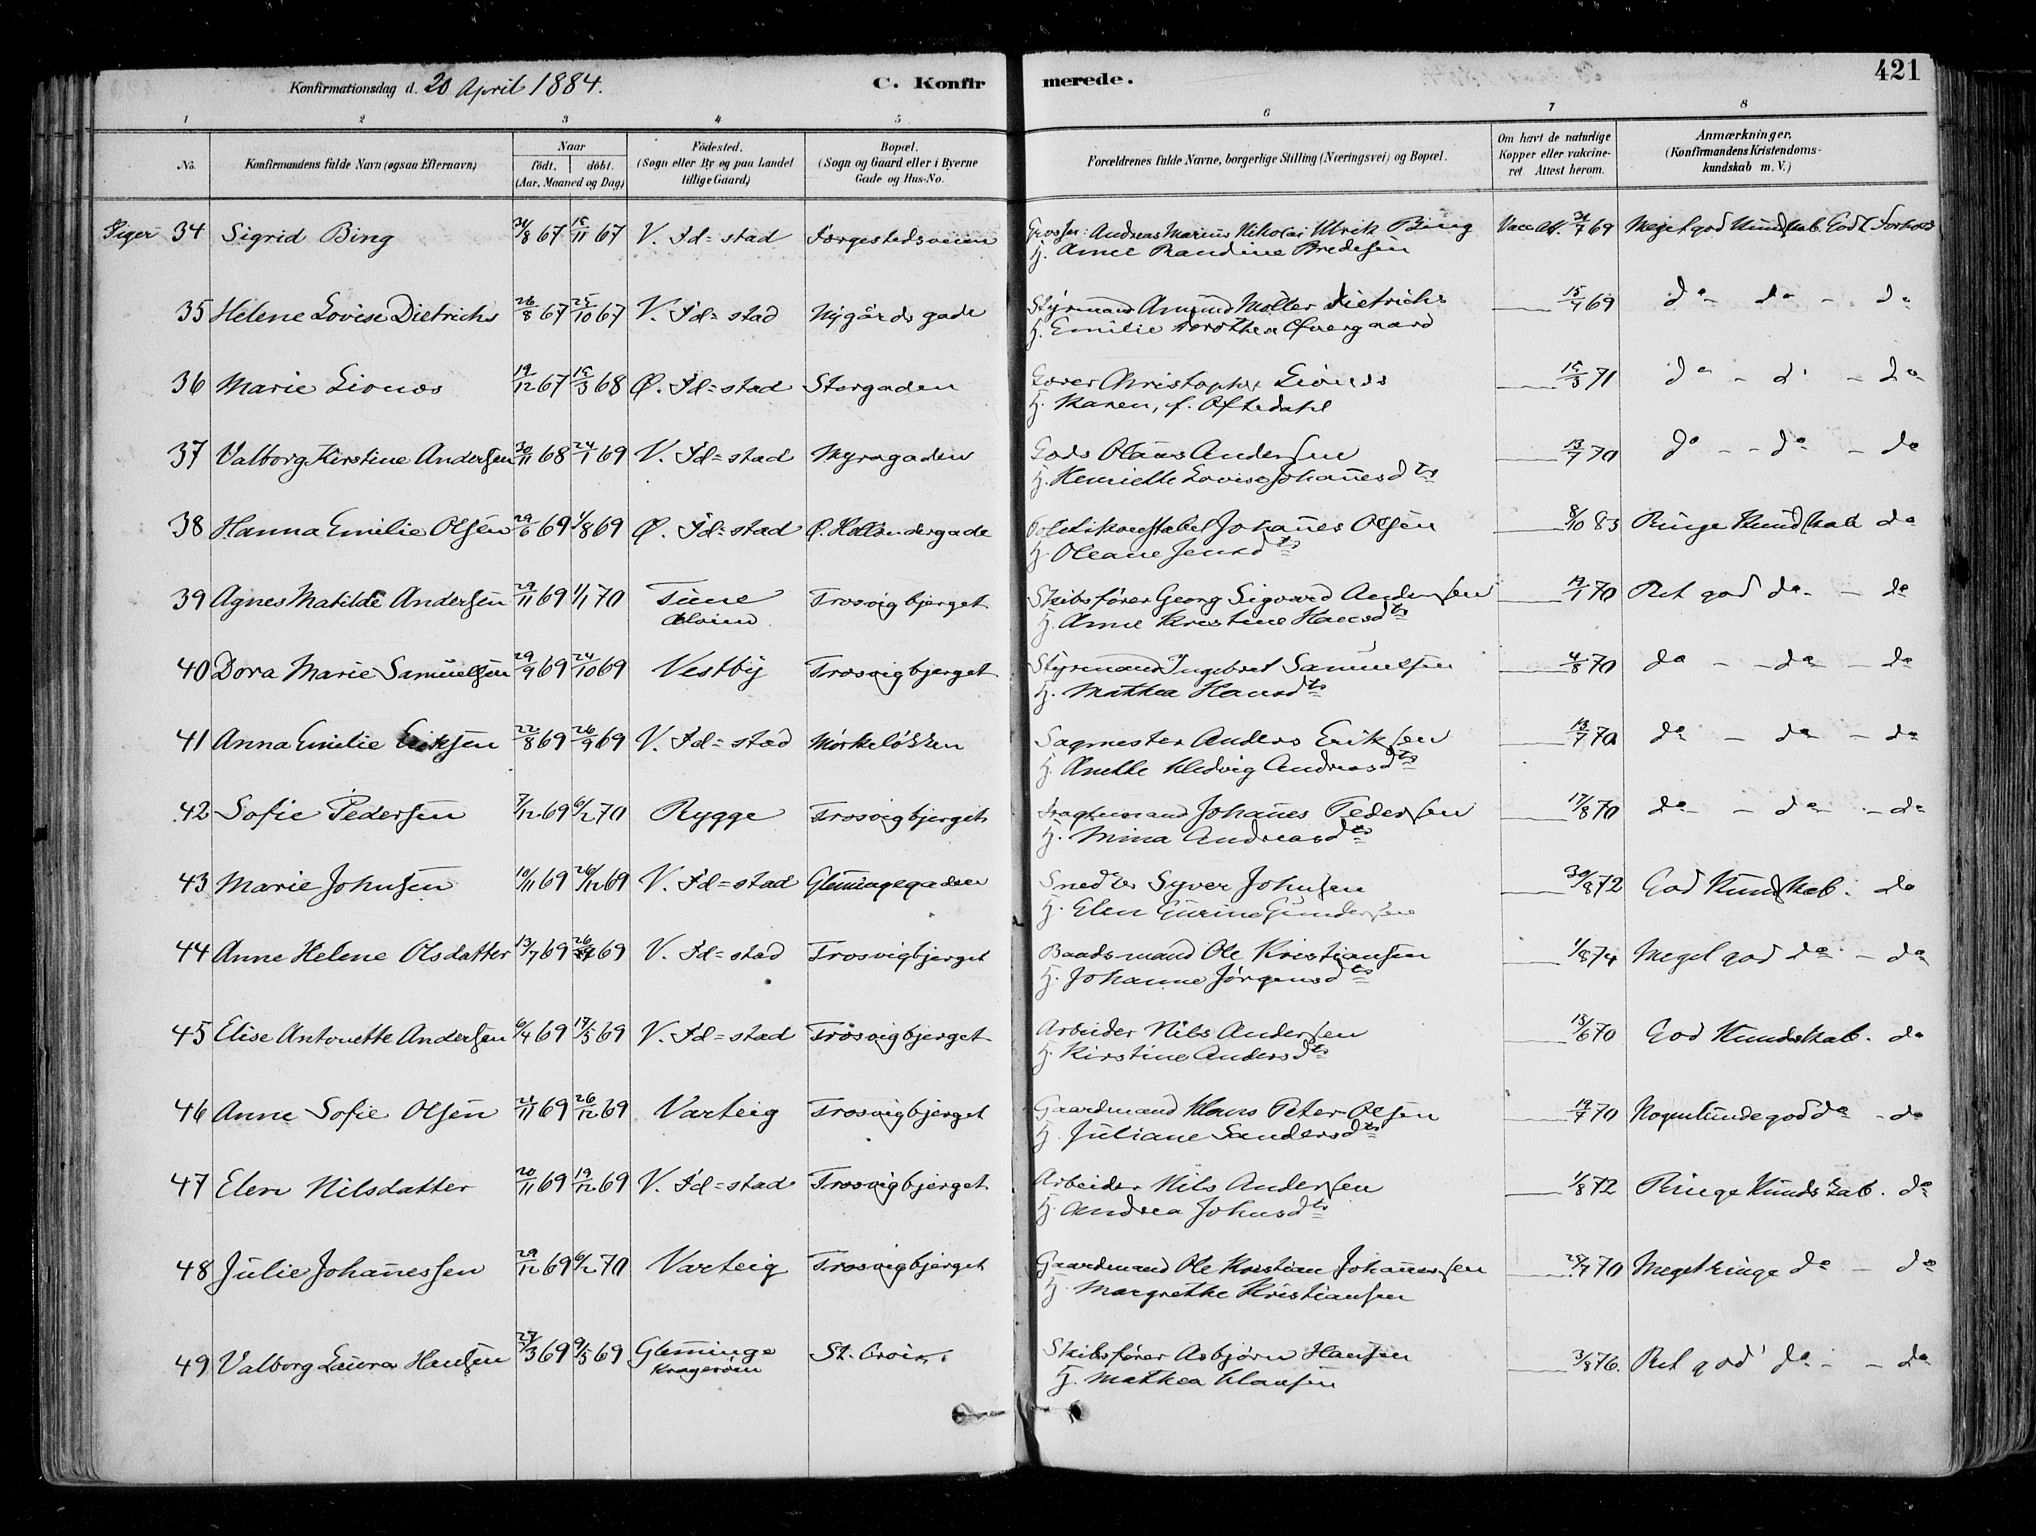 Konfirmationsdag d. 20 April 1884.
C. Konfirmerede.
421
1 2 3 4 5 6 7 8
No.
Konfirmandens fulde Navn (ogsaa Efternavn)
Naar
født. døbt.
(Aar, Maaned og Dag)
Fødested.
(Sogn eller By og paa Landet
tillige Gaard)
Bopæl.
(Sogn og Gaard eller i Byerne
Gade og Hus-No.
Forældrenes fulde Navne, borgerlige Stilling (Næringsvei) og Bopæl.
Om havt de naturlige
Kopper eller vakcine-
ret. Attest herom.
Anmærkninger,
(Konfirmandens Kristendoms-
kundskab m. V.)
Piger 34 Sigrid Bing 31/8 67 15/11 67 V. Fd=stad Fargestedsveien Grosser: Andreas Marius Nikolai Ulrik Bing Vacc. Att. 69 Meget god Kundskab. Godt Forhold
H. Anne Randine Bredesen
35 Helene Lovise Dietrichs 26/8 67 25/10 67 V. Fd=stad Nygårds gade Styrmand Amund Møller Dietrichs 15/7 69 do - do - do
H. Emilie Dorothea Overgaard
36 Marie Lionæs 19/12 67 15/3 68 Ø. Fd=stad Storgaden Christopher Lionæs 71 do - do - do
H. Karen, f. Oftedahl
37 Valborg Kirstine Andersen 30/11 68 24/1 69 V. Fd=stad Nyragaden Olaus Andersen 13/7 70 do - do - do
H. Henriette Lovise Johanesdtr
38 Hanna Emilie Olsen 29/6 69 1/8 69 Ø. Fd=stad Ø. Hollændergade Politikonstabel Johanes Olsen 8/10 83 Ringe Kundskab do
H. Oleane Jensdtr
39 Agnes Matilde Andersen 29/11 69 1/1 70 Tune Trosvigbjerget Skibsfører Georg Sigvard Andersen 70 Ret god do - do
Alvim H. Anne Kristine Hansdtr
40 Dora Marie Samuelsen 29/9 69 24/10 69 Vestby Trosvigbjerget Styrmand Ingebret Samuelsen 4/8 70 do - do - do
H. Mathea Hansdtr
41 Anna Emilie Eriksen 22/8 69 26/9 69 V. Fd=stad Mørkeløkken Sagmester Anders Eriksen 13/7 70 do - do - do
H. Anette Hedvig Andreasdtr
42 Sofie Pedersen 7/12 69 6/2 70 Rygge Trosvigbjerget Fragtemand Johanes Pedersen 17/8 70 do - do - do
H. Mina Andreasdtr
43 Marie Johnsen 10/11 69 26/12 69 V. Fd=stad Glemingegaden Snedker Syver Johnsen 30/8 72 God Kundskab. do
H. Elen Gurine Gundersen
44 Anne Helene Olsdatter 13/7 69 69 V. Fd=stad Trosvigbjerget Baadsmand Ole Kristiansen 1/8 74 Meget god do - do
H. Johanne Jørgensdtr
45 Elise Antonette Andersen 6/4 69 17/5 69 V. Fd=stad Trosvigbjerget Arbeider Nils Andersen 18/6 70 God Kundskab. do
H. Kirstine Andersdtr
46 Anne Sofie Olsen 21/11 69 26/12 69 Varteig Trosvigbjerget Gaardmand Hans Peter Olsen 19/7 70 Nogenlunde god do - do
H. Juliane Sandersdtr
47 Elen Nilsdatter 20/11 69 19/12 69 V. Fd=stad Trosvigbjerget Arbeider Nils Andersen 1/8 72 Ringe Kundskab. do
H. Andrea Johnsdtr
48 Julie Johanessen 29/12 69 6/2 70 Varteig Trosvigbjerget Gaardmand Ole Kristian Johanessen 70 Meget ringe do - do
H. Margrethe Kristiansen
49 Valborg Laura Hansen 27/3 69 9/5 69 Gleminge St. Croix. Skibsfører Asbjørn Hansen 3/8 76. Ret god do - - do
Kragerøen H. Mathea Klausen